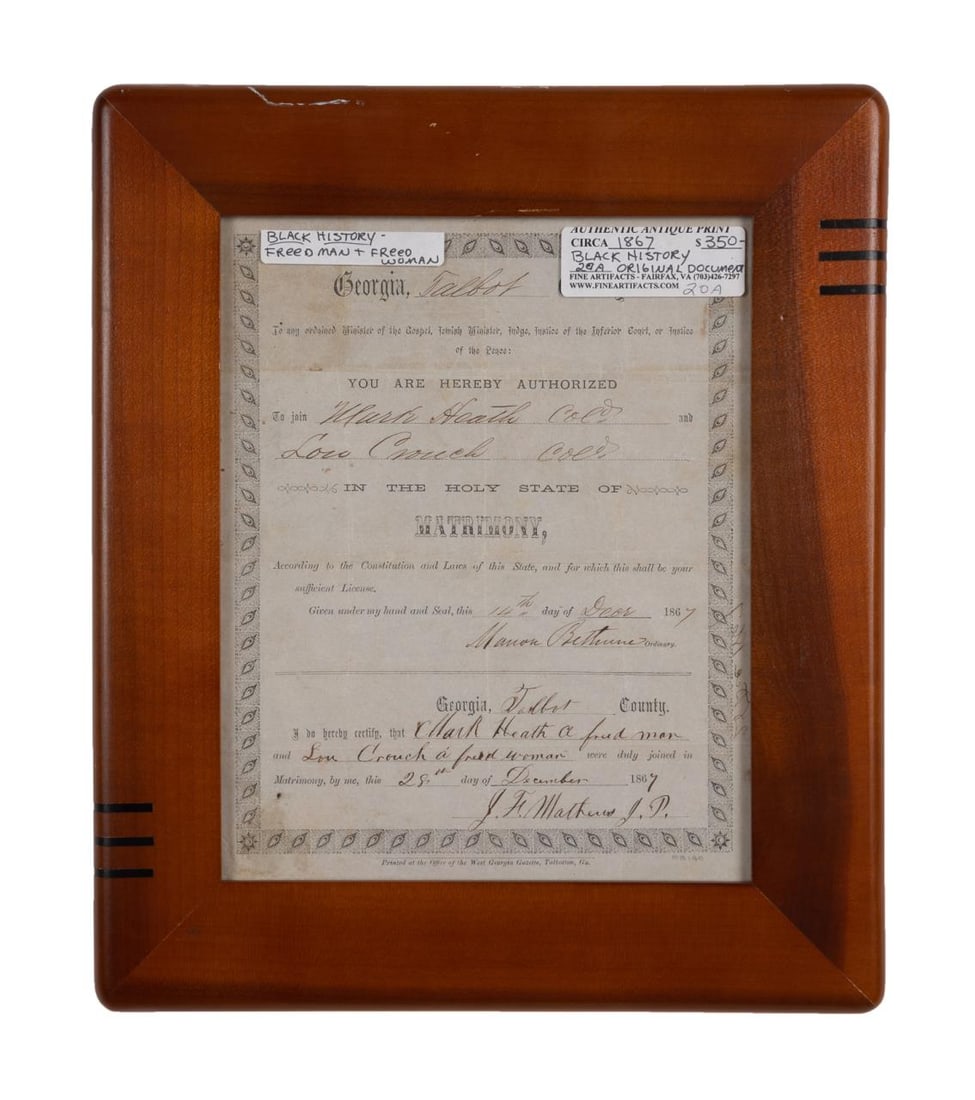 BLACK HISTORY -
FREED MAN + FREED
WOMAN
AUTHENTIC ANTIQUE PRINT
CIRCA 1867 $350-
BLACK HISTORY
20A ORIGINAL DOCUMENT
FINE ARTIFACTS - FAIRFAX, VA (703)426-7297
WWW.FINEARTIFACTS.COM 20A
Georgia, Talbot
To any ordained Minister of the Gospel, Jewish Minister, Judge, Justice of the Inferior Court, or Justice
of the Peace:
YOU ARE HEREBY AUTHORIZED
To join Mark Heath Cold and
Lou Crouch Cold
IN THE HOLY STATE OF
MATRIMONY,
According to the Constitution and Laws of this State, and for which this shall be your
sufficient License.
Given under my hand and Seal, this 14th day of Decr 1867
Marion Bethune Ordinary.
Georgia, Talbot County.
I do hereby certify, that Mark Heath a freed man
and Lou Crouch a freed woman were duly joined in
Matrimony, by me, this 28th day of December 1867
J. F. Mathews J. P.
Printed at the Office of the West Georgia Gazette, Talbotton, Ga.